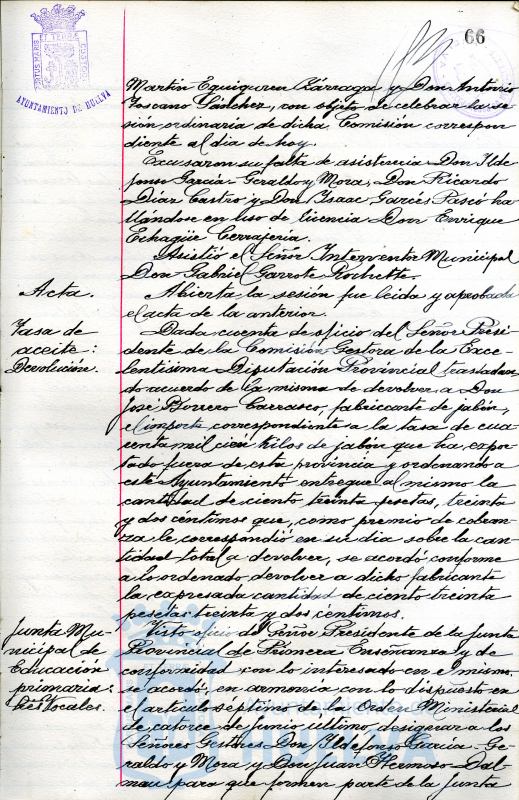 66
AYUNTAMIENTO DE HUELVA
Martín Equiguren Zárraga y Don Antonio
Toscano Sánchez, con objeto de celebrar la se-
sión ordinaria de dicha Comisión correspon-
diente al día de hoy.
Excusaron su falta de asistencia Don Ilde
fonso García-Geraldo y Mora, Don Ricardo
Díaz Castro y Don Isaac Garcés Pascó ha
llándose en uso de licencia Don Enrique
Echagüe Cerrajería.
Asistió el Señor Interventor Municipal
Don Gabriel Garrote Rochette.
Acta.
Abierta la sesión fue leída y aprobada
el acta de la anterior.
Tasa de
aceite:
Devolución.
Dada cuenta de oficio del Señor Presi-
dente de la Comisión Gestora de la Exce-
lentísima Diputación Provincial trasladan
do acuerdo de la misma de devolver a Don
José Borrero Carrasco, fabricante de jabón,
el importe correspondiente a la tasa de cua-
renta mil cien kilos de jabón que ha expor
tado fuera de esta provincia y ordenando a
este Ayuntamiento entregue al mismo la
cantidad de ciento treinta pesetas, treinta
y dos céntimos que, como premio de cobran-
za le correspondió en su día sobre la can-
tidad total a devolver, se acordó conforme
a lo ordenado, devolver a dicho fabricante
la expresada cantidad de ciento treinta
pesetas treinta y dos céntimos.
Junta Mu-
nicipal de
Educación
primaria:
Visto oficio del Señor Presidente de la Junta
Provincial de Primera Enseñanza y de
conformidad con lo interesado en el mismo,
se acordó, en armonía con lo dispuesto en
el artículo séptimo de la Orden Ministerial
de catorce de Junio último designar a los
Señores Gestores Don Ildefonso García-Ge-
raldo y Mora y Don Juan Hermoso Dal-
mau para que formen parte de la Junta